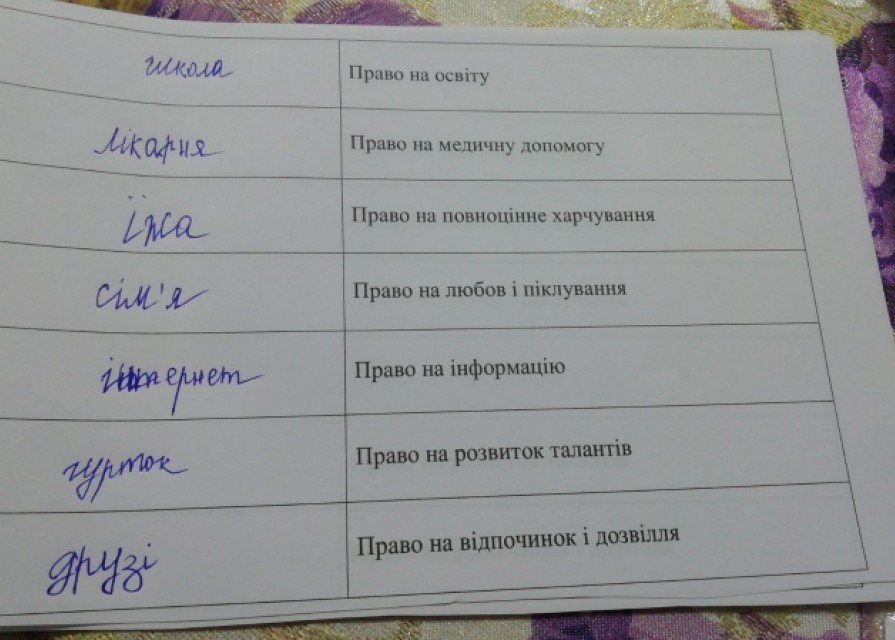 школа Право на освіту
лікарня Право на медичну допомогу
їжа Право на повноцінне харчування
сім'я Право на любов і піклування
інтернет Право на інформацію
гурток Право на розвиток талантів
друзі Право на відпочинок і дозвілля